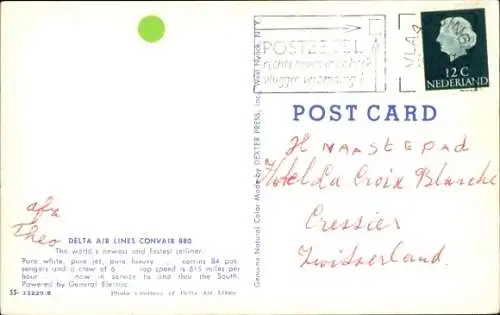 POSTZEGEL
rechts boven in de hoek
vlugger verzending!
VLAARDINGEN
12 C
NEDERLAND
POST CARD
H NAASTEPAD
Hotel La Croix Blanche
Cressier
Zwitserland.
afz
Theo
DELTA AIR LINES CONVAIR 880
The world's newest and fastest jetliner.
Pure white, pure jet, pure luxury carries 84 pas-
sengers and a crew of 6 top speed is 615 miles per
hour. now in service to and thru the South.
Powered by General Electric
SS-33229-B Photo courtesy of Delta Air Lines
Genuine Natural Color Made by DEXTER PRESS, Inc. West Nyack, N. Y.